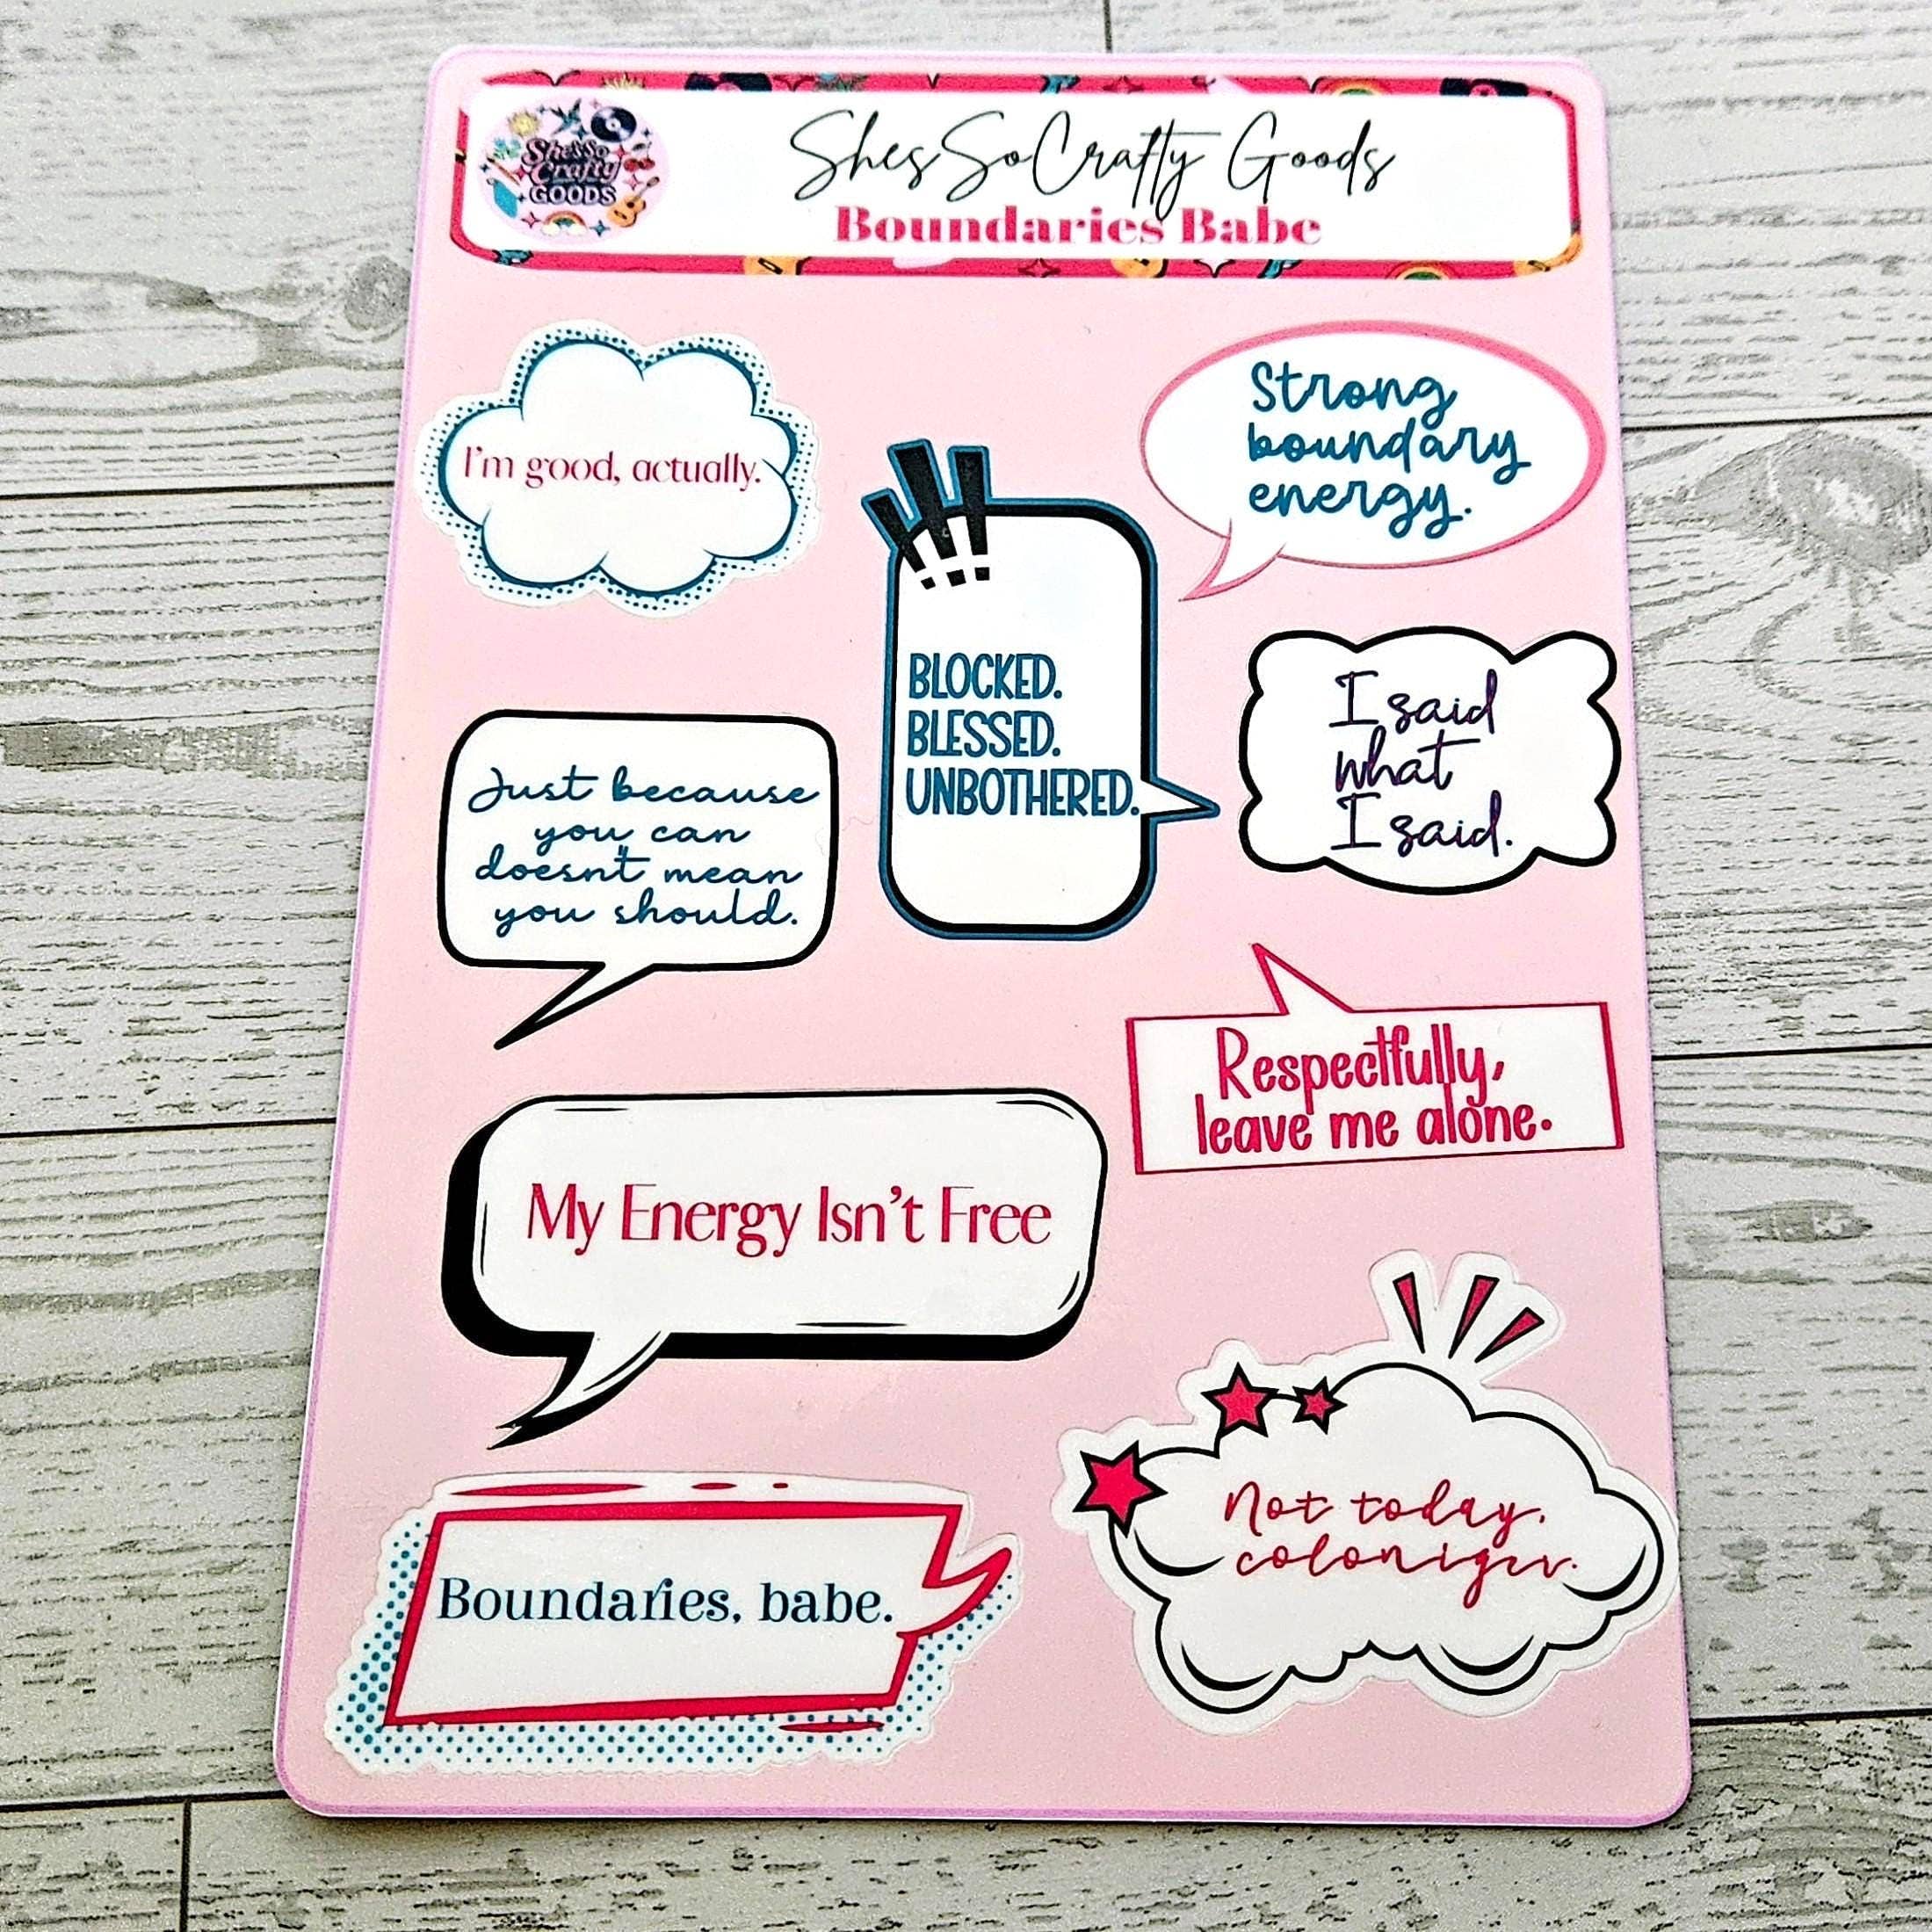 She's So
Crafty
GOODS
ShesSoCrafty Goods
Boundaries Babe
I'm good, actually.
Strong
boundary
energy.
!!!
BLOCKED.
BLESSED.
UNBOTHERED.
I said
what
I said.
Just because
you can
doesn't mean
you should.
Respectfully,
leave me alone.
My Energy Isn't Free
Not today,
colonizer.
Boundaries, babe.